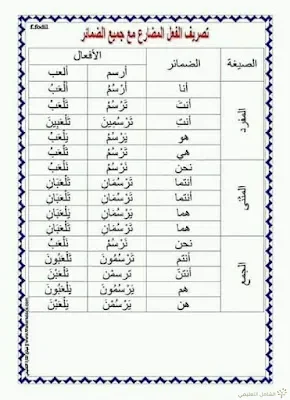 f.fodil
تصريف الفعل المضارع مع جميع الضمائر
الصيغة الضمائر الأفعال
أرسم ألعب
المفرد
أنا أَرْسُمُ أَلْعَبُ
أنتَ تَرْسُمُ تَلْعَبُ
أنتِ تَرْسُمِينَ تَلْعَبِينَ
هو يَرْسُمُ يَلْعَبُ
هي تَرْسُمُ تَلْعَبُ
المثنى
نحن نَرْسُمُ نَلْعَبُ
أنتما تَرْسُمَانِ تَلْعَبَانِ
أنتما تَرْسُمَانِ تَلْعَبَانِ
هما يَرْسُمَانِ يَلْعَبَانِ
هما تَرْسُمَانِ تَلْعَبَانِ
الجمع
نحن نَرْسُمُ نَلْعَبُ
أنتم تَرْسُمُونَ تَلْعَبُونَ
أنتنّ ترسمن تَلْعَبْنَ
هم يَرْسُمُونَ يَلْعَبُونَ
هن يَرْسُمْنَ يَلْعَبْنَ